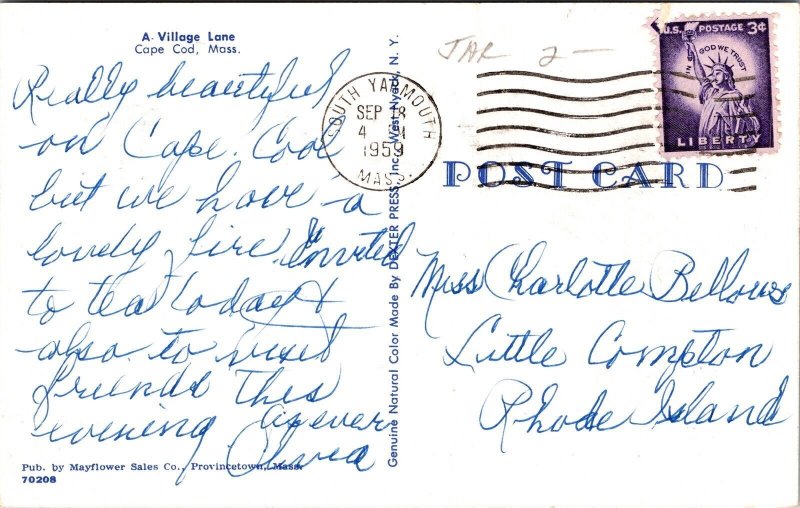 A Village Lane
Cape Cod, Mass.
Really beautiful
on Cape Cod
but we have a
lovely fire. Invited
to tea today &
also to visit
friends this
evening As ever
Olivia
Pub. by Mayflower Sales Co., Provincetown, Mass.
70208
Genuine Natural Color Made By DEXTER PRESS, Inc., West Nyack, N. Y.
JAR 2 —
SOUTH YARMOUTH
SEP 18
4
1959
MASS.
U.S. POSTAGE 3¢
IN GOD WE TRUST
LIBERTY
POST CARD
Miss Charlotte Bellows
Little Compton
Rhode Island